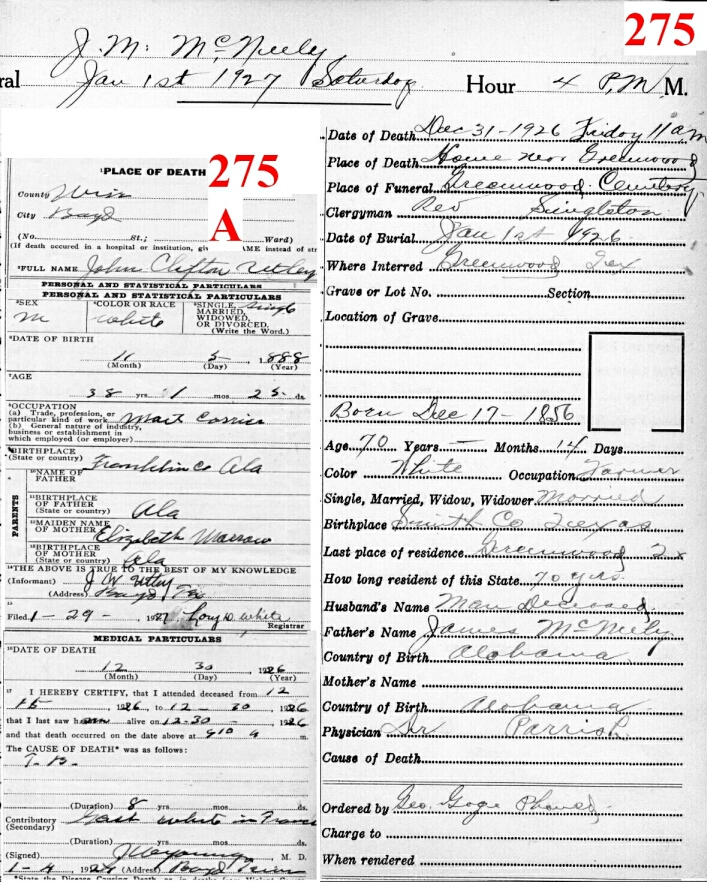 275
J. M. McNeely
ral Jan 1st 1927 Saturday Hour 4 P.M. M.
¹PLACE OF DEATH 275
County Wise
City Boyd
A
(No. St.; Ward)
(If death occured in a hospital or institution, giv AME instead of str
²FULL NAME John Clifton Utley
PERSONAL AND STATISTICAL PARTICULARS
PERSONAL AND STATISTICAL PARTICULARS
³SEX ⁴COLOR OR RACE ⁵SINGLE, Single
M white MARRIED,
WIDOWED,
OR DIVORCED,
(Write the Word.)
⁶DATE OF BIRTH
11 5 1888
(Month) (Day) (Year)
⁷AGE
38 yrs 1 mos 25 ds.
⁸OCCUPATION
(a) Trade, profession, or
particular kind of work
(b) General nature of industry,
business or establishment in
which employed (or employer)
⁹BIRTHPLACE
(State or country) Franklin Co Ala
PARENTS
¹⁰NAME OF
FATHER
¹¹BIRTHPLACE
OF FATHER
(State or country) Ala
¹²MAIDEN NAME
OF MOTHER Elizabeth
¹³BIRTHPLACE
OF MOTHER
(State or country) Ala
¹⁴THE ABOVE IS TRUE TO THE BEST OF MY KNOWLEDGE
(Informant) Utley
(Address) Boyd Tex
15
Filed 1-29- 1927 White
Registrar
MEDICAL PARTICULARS
¹⁶DATE OF DEATH
12 30 1926
(Month) (Day) (Year)
17 I HEREBY CERTIFY, that I attended deceased from 12
15 1926, to 12-30-1926
that I last saw h alive on 12-30-1926
and that death occurred on the date above at m.
The CAUSE OF DEATH* was as follows:
T.B.
(Duration) 8 yrs mos ds.
Contributory
(Secondary)
(Duration) yrs mos ds.
(Signed) M. D.
1-4, 19 (Address) Boyd
*State the Disease Causing Death
Date of Death Dec 31-1926 Friday 11 am
Place of Death Home near Greenwood
Place of Funeral Greenwood Cemetery
Clergyman Rev Singleton
Date of Burial Jan 1st 1926
Where Interred Greenwood Tex
Grave or Lot No. Section
Location of Grave
Born Dec 17-1856
Age 70 Years — Months 14 Days
Color White Occupation Farmer
Single, Married, Widow, Widower Married
Birthplace Smith Co Texas
Last place of residence Greenwood Tx
How long resident of this State 70 yrs.
Husband's Name Man Deceased
Father's Name James McNeely
Country of Birth Alabama
Mother's Name
Country of Birth Alabama
Physician Dr Parrish
Cause of Death
Ordered by Geo. Gage Phoned
Charge to
When rendered